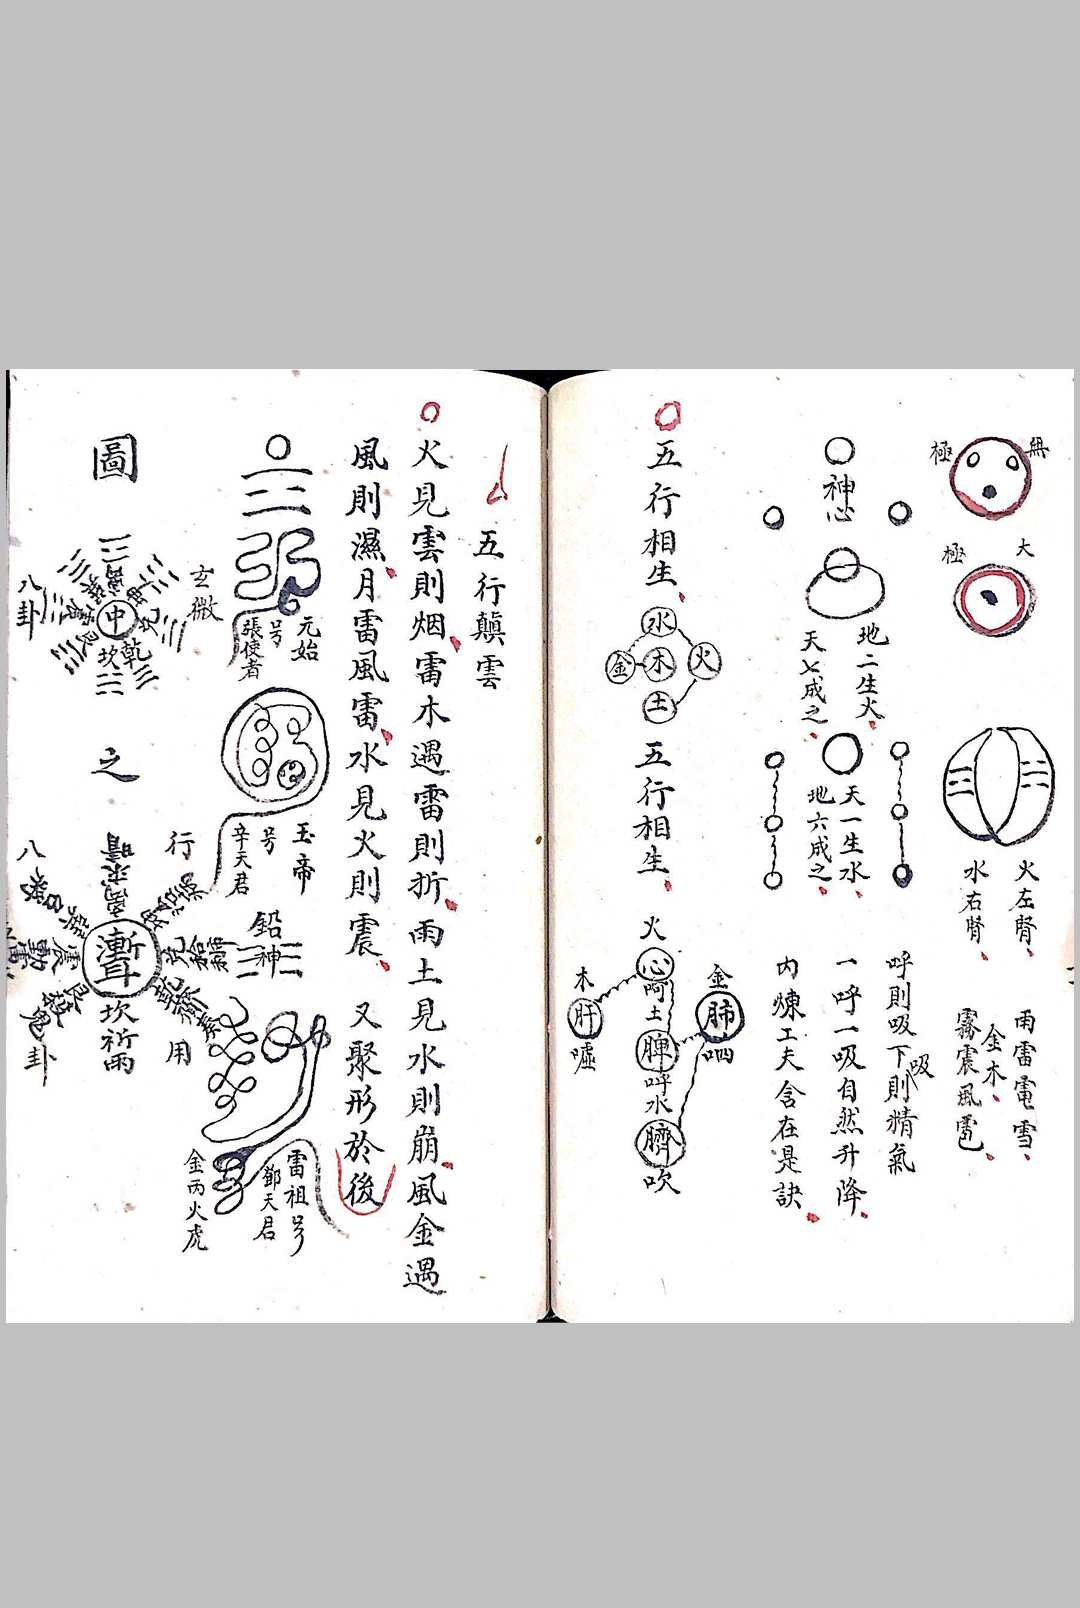 無極
大極
火左腎
水右腎
雨雷電雪
金木
霧震風雹
神心
地二生火
天七成之
天一生水
地六成之
呼則吸下則精氣
吸
一呼一吸自然升降
內煉工夫含在是訣
五行相生
水
火
木
金
土
五行相生
火
心
呵
土
脾
呼
水
臍
吹
金
肺
呬
木
肝
噓
五行顛雲
火見雲則烟雷木遇雷則折雨土見水則崩風金遇
風則濕月雷風雷水見火則震 又聚形於後
元始
号
張使者
玉帝
号
辛天君
鉛神
雷祖号
鄧天君
金丙火虎
玄微
八卦
中
乾
坎
艮
兌
圖
之
行用
八卦
坎祈雨
乾
兌
震動
艮
巽